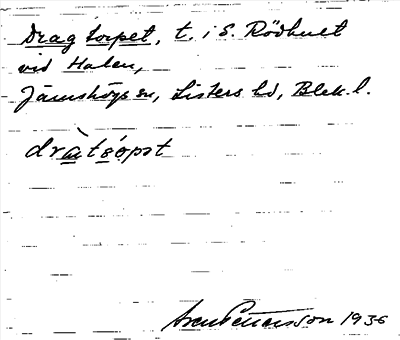 Dragtorpet, t. i S. Rödhult
vid Halen,
Jämshögs sn, Listers hd, Blek. l.
dràtsópət
Sven Benson 1936